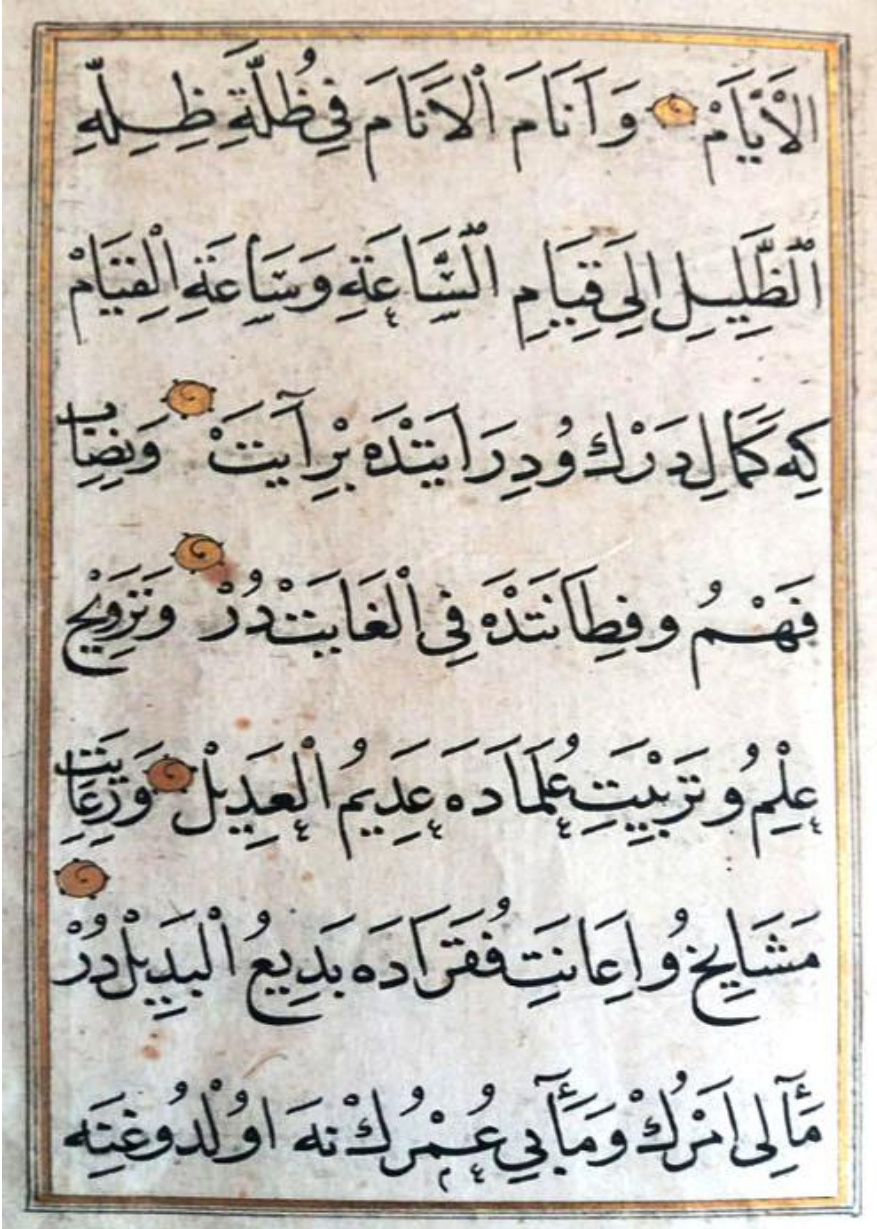 الْاَيَّامْ وَاَنَامَ الْاَنَامَ فِي ظُلَّةِ ظِلِّهِ
الظَّلِيلِ اِلَى قِيَامِ السَّاعَةِ وَسَاعَةِ الْقِيَامْ
كِه كَمَالِ دَرْك وُ دِرَايَتْدَه بْرِآيَتْ وَنِصَابِ
فَهْمُ و فِطَانَتْدَه فِي الْغَايَتْدُرْ وَتَرْوِيْجِ
عِلْمِ وُ تَرْبِيَتِ عُلَمَادَه عَدِيمُ الْعَدِيلْ وَرِعَايَتِ
مَشَايِخ وُ اِعَانَتِ فُقَرَادَه بَدِيعُ الْبَدِيلْدُرْ
مَأٓلِ اَمْرُكْ وَمَأٓبِ عُمْرُكْ نَه اوُلْدُوغِنَه